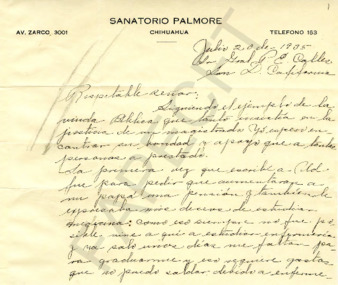 SANATORIO PALMORE
AV. ZARCO, 3001 CHIHUAHUA TELEFONO 153
Julio 20 de 1935
Sr. Gral. P. E. Calles
San D. California
Respetable señor:
Siguiendo el ejemplo de la
viuda que tanto insistía en la
de un magistrado. Yo, espero en-
contrar su bondad y apoyo que a tantas
personas a prestado.
La primera vez que escribí a Ud.
fue para pedir que aumentaran a
mi papá una pensión y también le
expresaba mis deseos de estudiar
como eso siempre no fue po-
sible, vine a qui a estudiar enfermería
y ya solo unos días me faltan pa
ra graduarme y eso requiere gastos
que no puedo saldar debido a enferme-